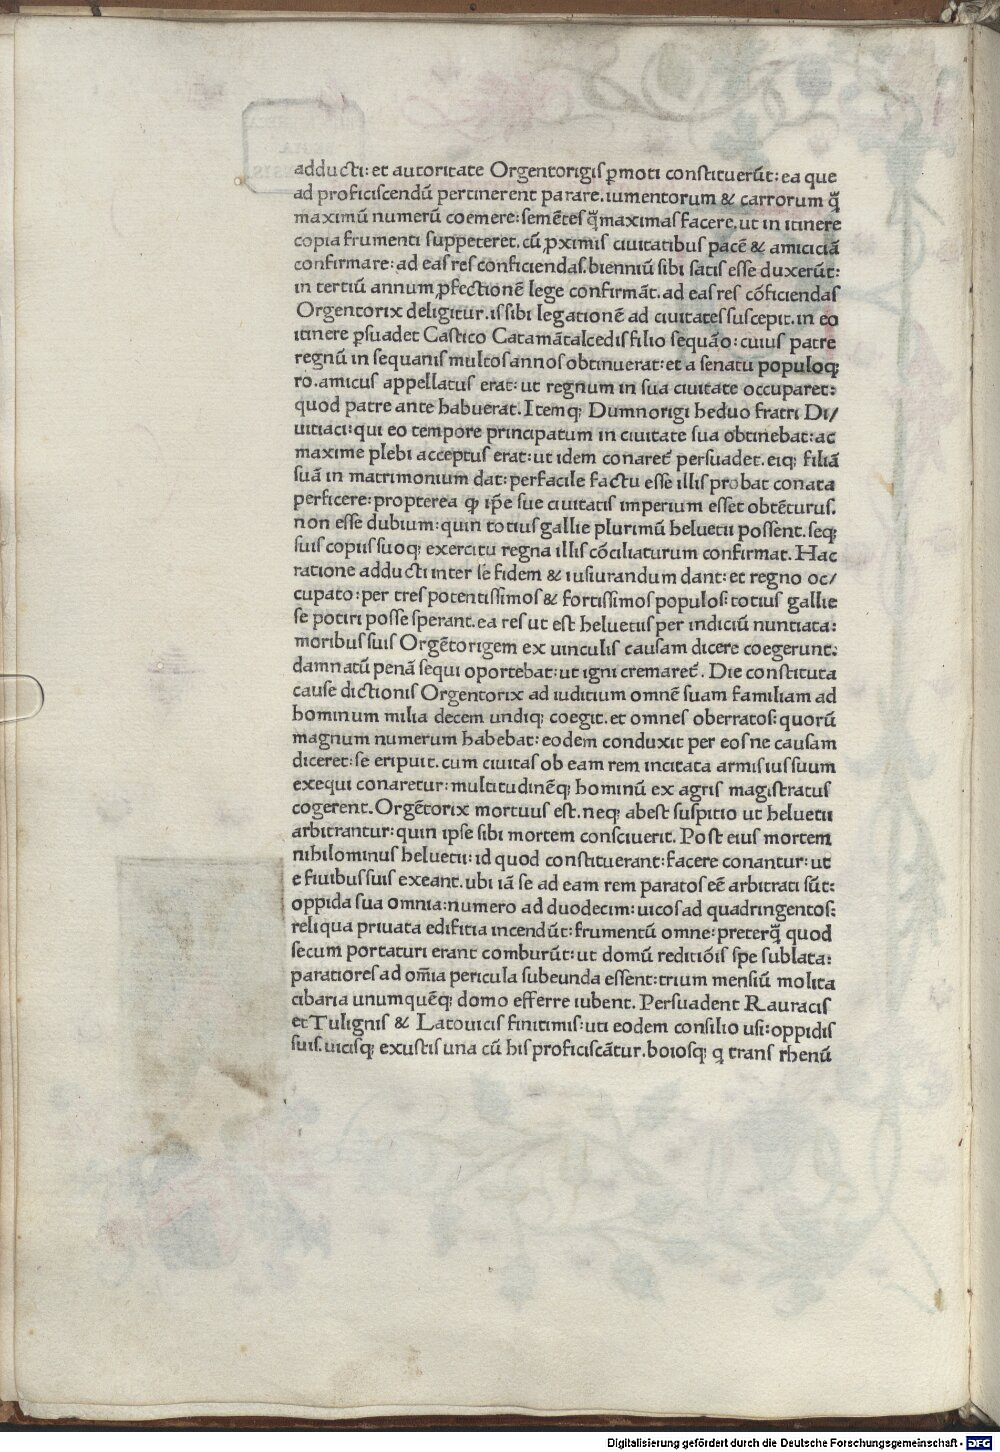 adducti: et autoritate Orgentorigis ꝑmoti constituerũt: ea que
ad proficiscendũ pertinerent parare. iumentorum & carrorum q̃
maximũ numerũ coemere: semẽtes q̃ maximas facere, ut in itinere
copia frumenti suppeteret. cũ ꝓximis ciuitatibus pacẽ & amiciciã
confirmare: ad eas res conficiendas. bienniũ sibi satis esse duxerũt:
in tertiũ annum ꝓfectionẽ lege confirmãt. ad eas res cõficiendas
Orgentorix deligitur. is sibi legationẽ ad ciuitates suscepit. in eo
itinere ꝑsuadet Castico Catamãtalcedis filio sequão: cuius patre
regnũ in sequanis multos annos obtinuerat: et a senatu populoqꝫ
ro. amicus appellatus erat: ut regnum in sua ciuitate occuparet:
quod patre ante habuerat. Itemqꝫ Dumnorigi heduo fratri Di/
uitiaci: qui eo tempore principatum in ciuitate sua obtinebat: ac
maxime plebi acceptus erat: ut idem conaret᷑ persuadet. eiqꝫ filiã
suã in matrimonium dat: perfacile factu esse illis probat conata
perficere: propterea ꝙ ip̃e sue ciuitatis imperium esset obtẽturus.
non esse dubium: quin totius gallie plurimũ heluetii possent. seqꝫ
suis copiis suoqꝫ exercitu regna illis cõciliaturum confirmat. Hac
ratione adducti inter se fidem & iusiurandum dant: et regno oc/
cupato: per tres potentissimos & fortissimos populos: totius gallie
se potiri posse sperant. ea res ut est heluetiis per indiciũ nuntiata:
moribus suis Orgẽtorigem ex uinculis causam dicere coegerunt:
damnatũ penã sequi oportebat: ut igni cremaret᷑. Die constituta
cause dictionis Orgentorix ad iuditium omnẽ suam familiam ad
hominum milia decem undiqꝫ coegit. et omnes oberratos: quorũ
magnum numerum habebat: eodem conduxit per eos ne causam
diceret: se eripuit. cum ciuitas ob eam rem incitata armis ius suum
exequi conaretur: multitudinẽqꝫ hominũ ex agris magistratus
cogerent. Orgẽtorix mortuus est. neqꝫ abest suspitio ut heluetii
arbitrantur: quin ipse sibi mortem consciuerit. Post eius mortem
nihilominus heluetii: id quod constituerant: facere conantur: ut
e finibus suis exeant. ubi iã se ad eam rem paratos eẽ arbitrati sũt:
oppida sua omnia: numero ad duodecim: uicos ad quadringentos:
reliqua priuata edifitia incendũt: frumentũ omne: preterq̃ quod
secum portaturi erant comburũt: ut domũ reditiõis spe sublata:
paratiores ad om̃ia pericula subeunda essent: trium mensiũ molita
cibaria unumquẽqꝫ domo efferre iubent. Persuadent Rauracis
et Tulignis & Latouicis finitimis: uti eodem consilio usi: oppidis
suis. uicisqꝫ exustis una cũ his proficiscãtur. boiosqꝫ q̵ trans rhenũ
Digitalisierung gefördert durch die Deutsche Forschungsgemeinschaft - DFG